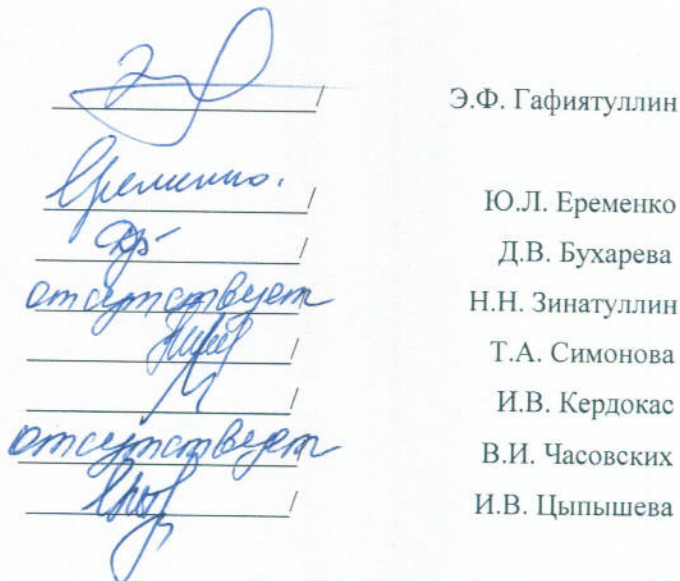 / Э.Ф. Гафиятуллин
/ Ю.Л. Еременко
/ Д.В. Бухарева
отсутствует Н.Н. Зинатуллин
/ Т.А. Симонова
/ И.В. Кердокас
отсутствует В.И. Часовских
/ И.В. Цыпышева